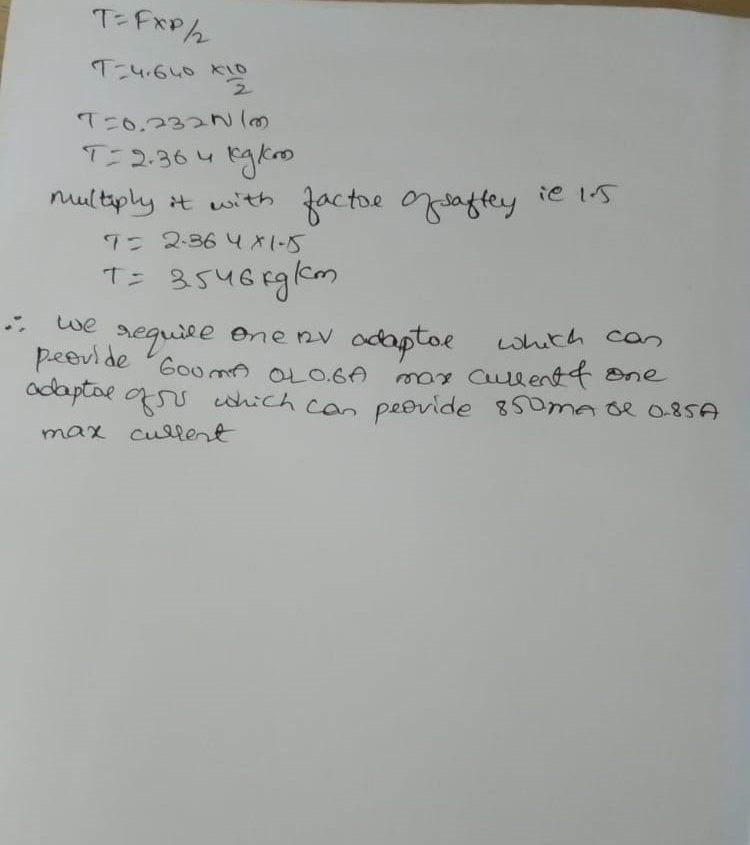 T=F×D/2
T=4.640 ×10/2
T=0.232N/m
T=2.364 kg/cm
multiply it with factor of saftey ie 1.5
T= 2.364×1.5
T= 3.546kg/cm
∴ we require one 12V adaptor which can
provide 600mA or 0.6A max current & one
adaptor of 5V which can provide 850mA or 0.85A
max current